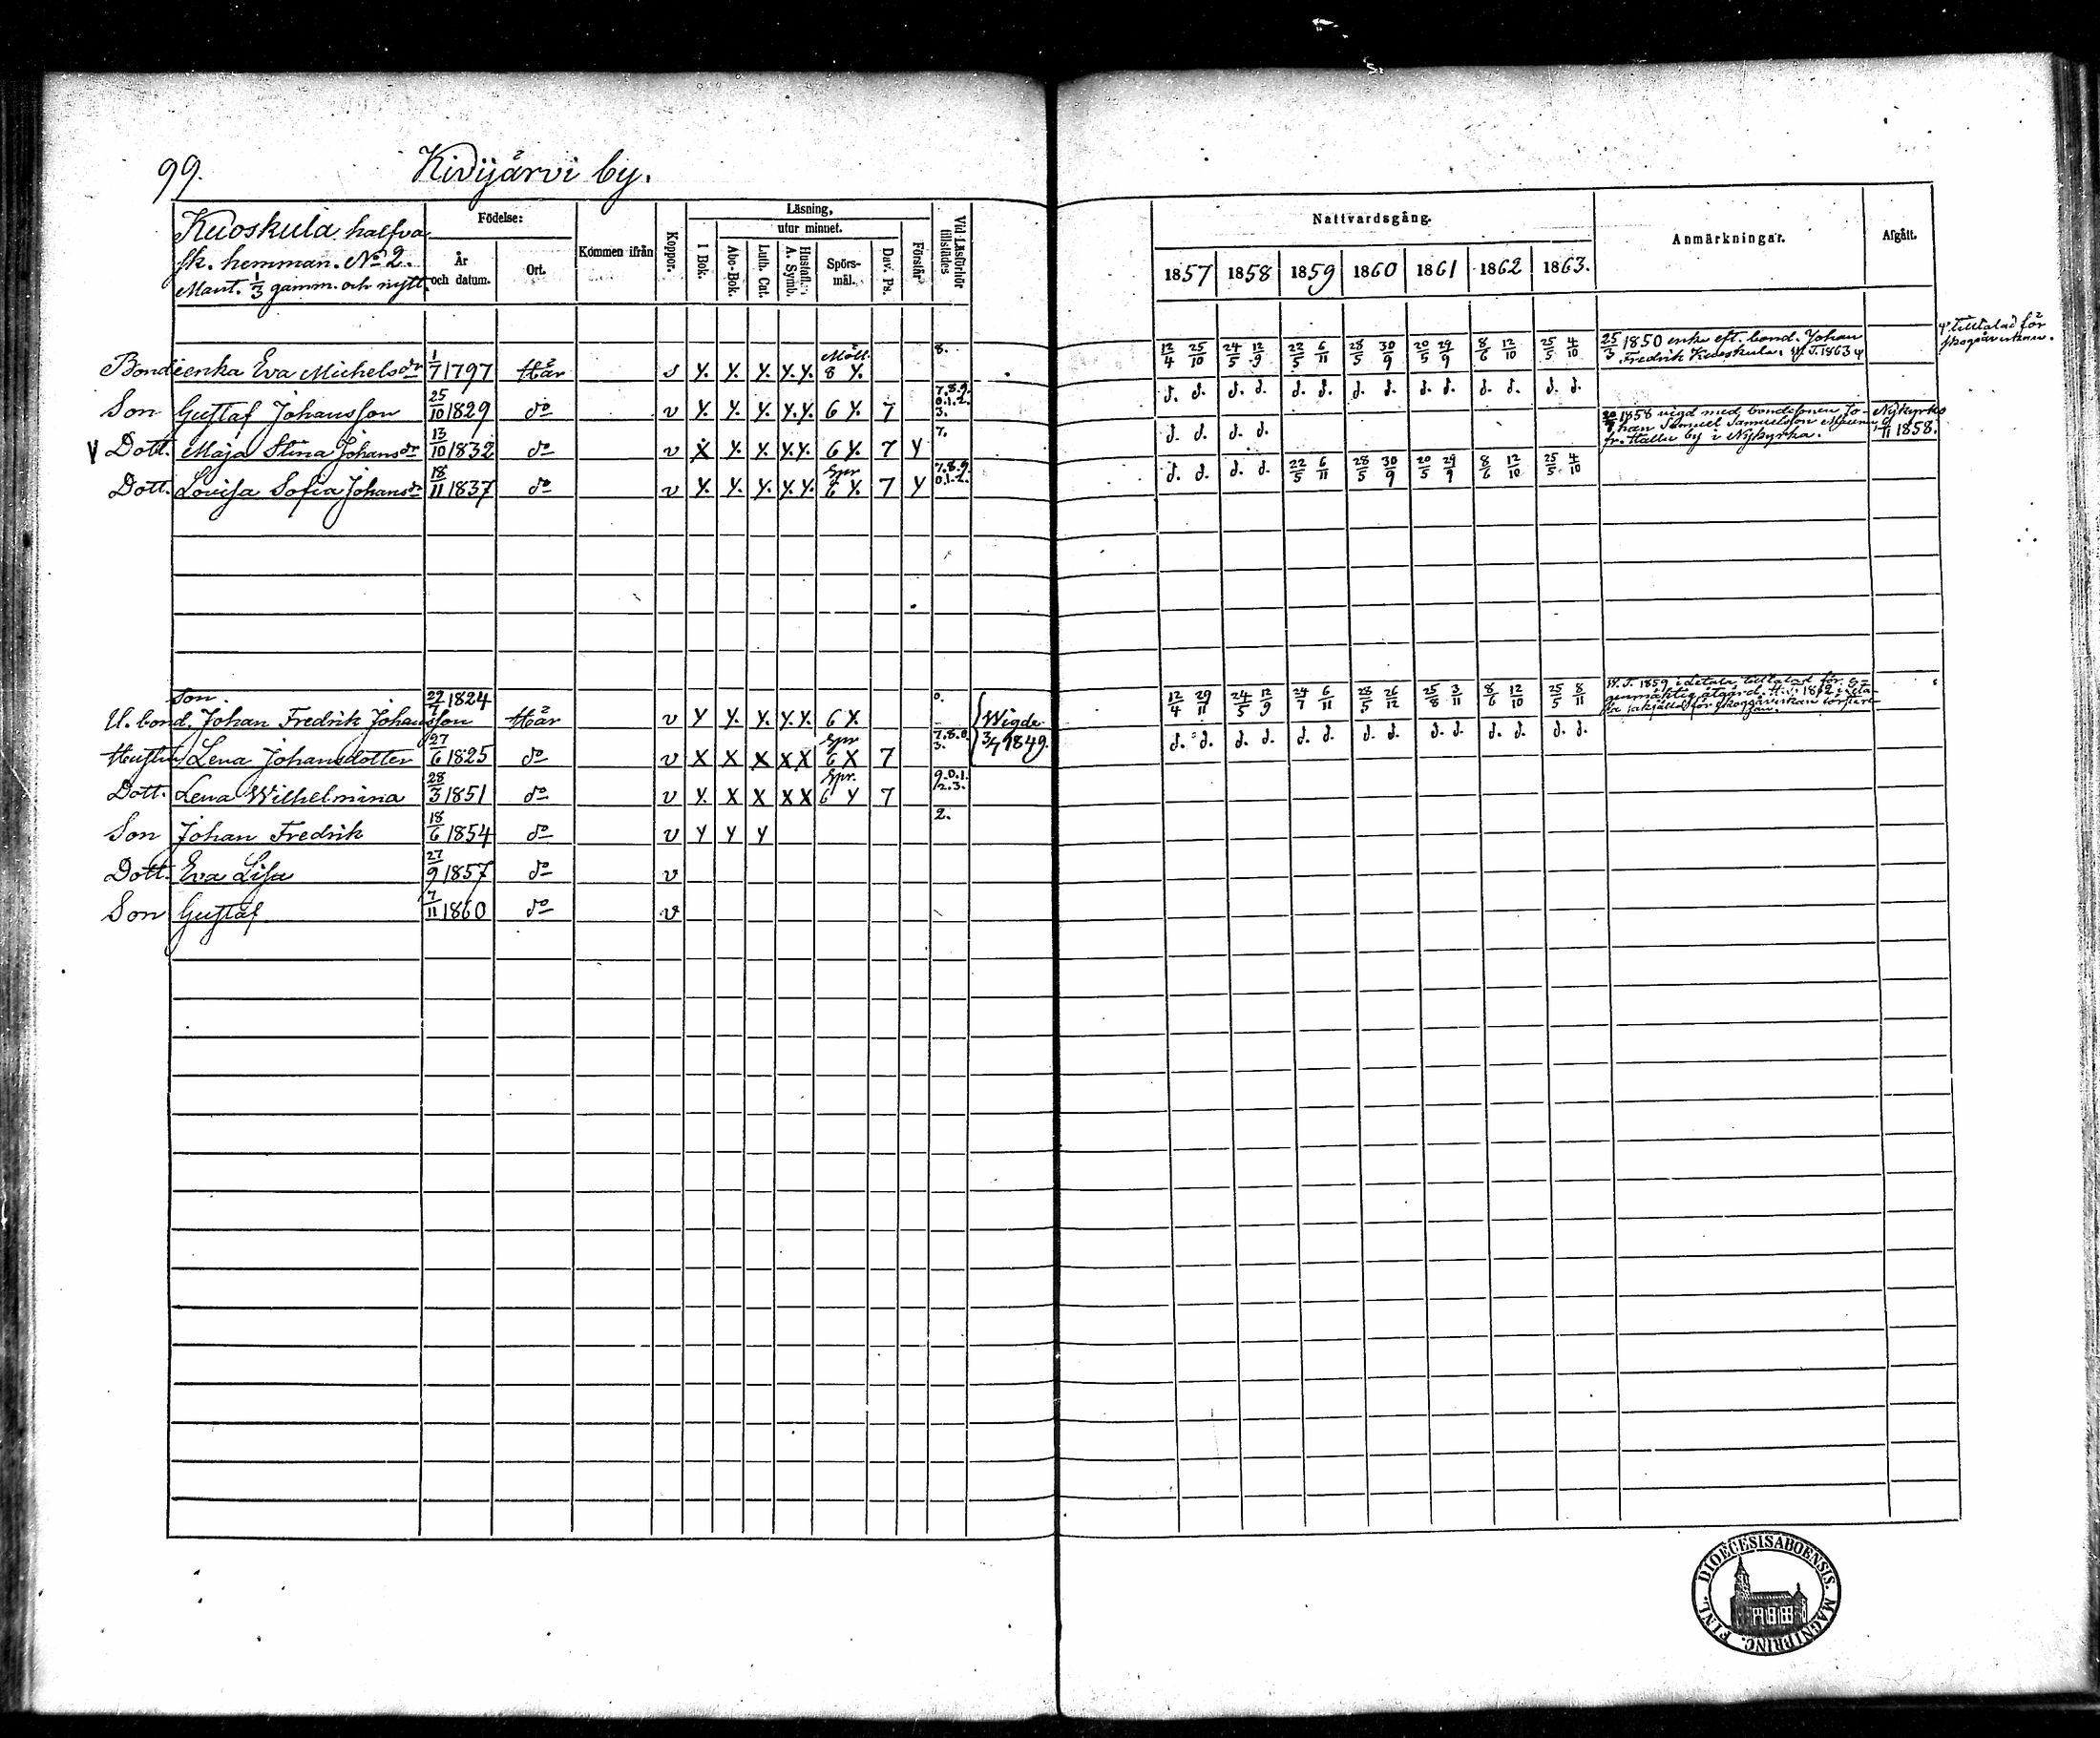 99. Kidijärvi by.
Kuoskula halfva
sk. hemman. No 2.
Mant. 1/3 gamm. och nytt.
Födelse:
År
och datum.
Ort.
Kommen ifrån
Koppor.
Läsning,
utur minnet.
I Bok.
Abc-Bok.
Luth. Cat.
Hustafl.
A. Symb.
Spörs-
mål.
Dav. Ps.
Förstår
Vid Läsförhör
tillstädes
Nattvardsgång.
1857 1858 1859 1860 1861 1862 1863.
Anmärkningar.
Afgått.
Bondeenka Eva Michelsdr 1/7 1797 Här v y. y. y. y. y. 8 y. 8. 12/4 25/10 24/5 12/9 22/5 6/11 28/5 30/9 20/5 29/9 8/6 12/10 25/5 4/10
25/3 1850 enka eft. bond. Johan
Fredrik Kuoskula. W. T. 1863 φ
φ tilltalad för
skogsåverkan.
Son Gustaf Johansson 25/10 1829 do v y. y. y. y. y. 6 y. 7 7.8.9. 0.1.2. 3. d. d. d. d. d. d. d. d. d. d. d. d. d. d.
V Dott. Maja Stina Johansdr 13/10 1832 do v x y. y. y. y. 6 y. 7 y 7. d. d. d. d.
1858 vigd med bondesonen Jo-
han Samuel Samuelsson
fr. Hallu by i Nykyrka.
Nykyrko
1858.
Dott. Lovisa Sofia Johansdr 18/11 1837 do v y. y. y. y. y. Spr 6 y. 7 y 7.8.9. 0.1.2. d. d. d. d. 22/5 6/11 28/5 30/9 20/5 29/9 8/6 12/10 25/5 4/10
Son.
U. bond. Johan Fredrik Johansson 29/7 1824 Här v y y. y. y. y. 6 y. 0. Wigde 12/4 29/11 24/5 12/9 24/7 6/11 28/5 26/12 25/8 3/11 8/6 12/10 25/5 8/11
W. T. 1859 tilltalad för e-
genmäktig åtgärd. H. t. 1862
för skogsåverkan
Hustru Lena Johansdotter 27/6 1825 do v x x x x x Spr 6 x 7 7.8.0. 3. 3/7 1849. d. d. d. d. d. d. d. d. d. d. d. d. d. d.
Dott. Lena Wilhelmina 28/3 1851 do v y. x x x x Spr. 6 y 7 9.0.1. 2.3.
Son Johan Fredrik 18/6 1854 do v y y y 2.
Dott. Eva Lisa 27/9 1857 do v
Son Gustaf 7/11 1860 do v
DIOECESIS ABOENSIS. MAGNI PRINC. FINL.